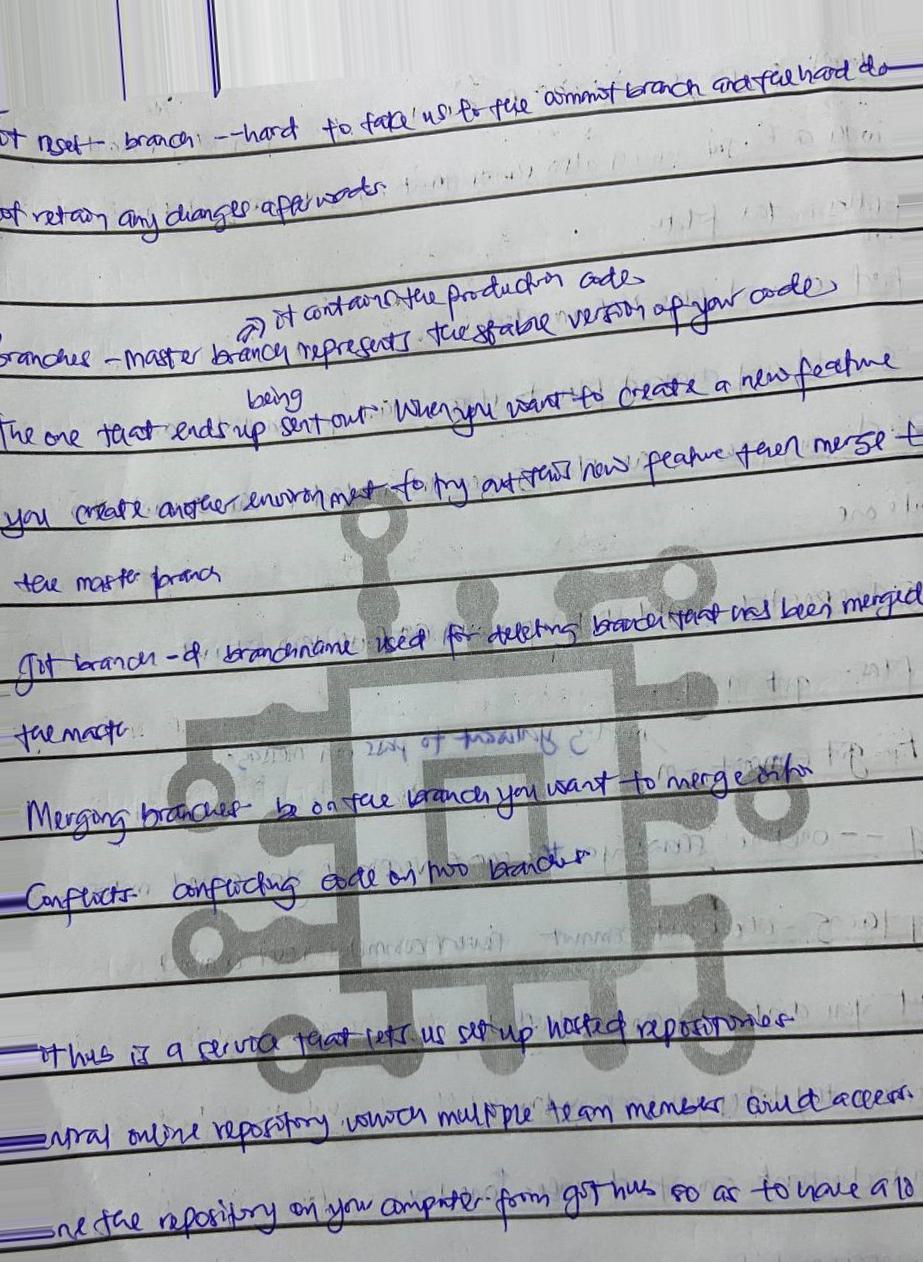 reset branch --hard to take us to the commit branch and the hard do
retain any changes afterwords.
it contains the production code
branches - master branch represents the stable version of your code
being
The one that ends up sent out. When you want to create a new feature
you create another environment to try out this new feature then merge t
the master branch
git branch -d branchname used for deleting branch that has been merged
the maste
Merging branches - be on the branch you want to merge into
Conflicts - conflicting code on two branches
ithub is a service that lets us set up hosted repositories
ntral online repository which multiple team members could access.
one the repository on your computer from github so as to have a lo